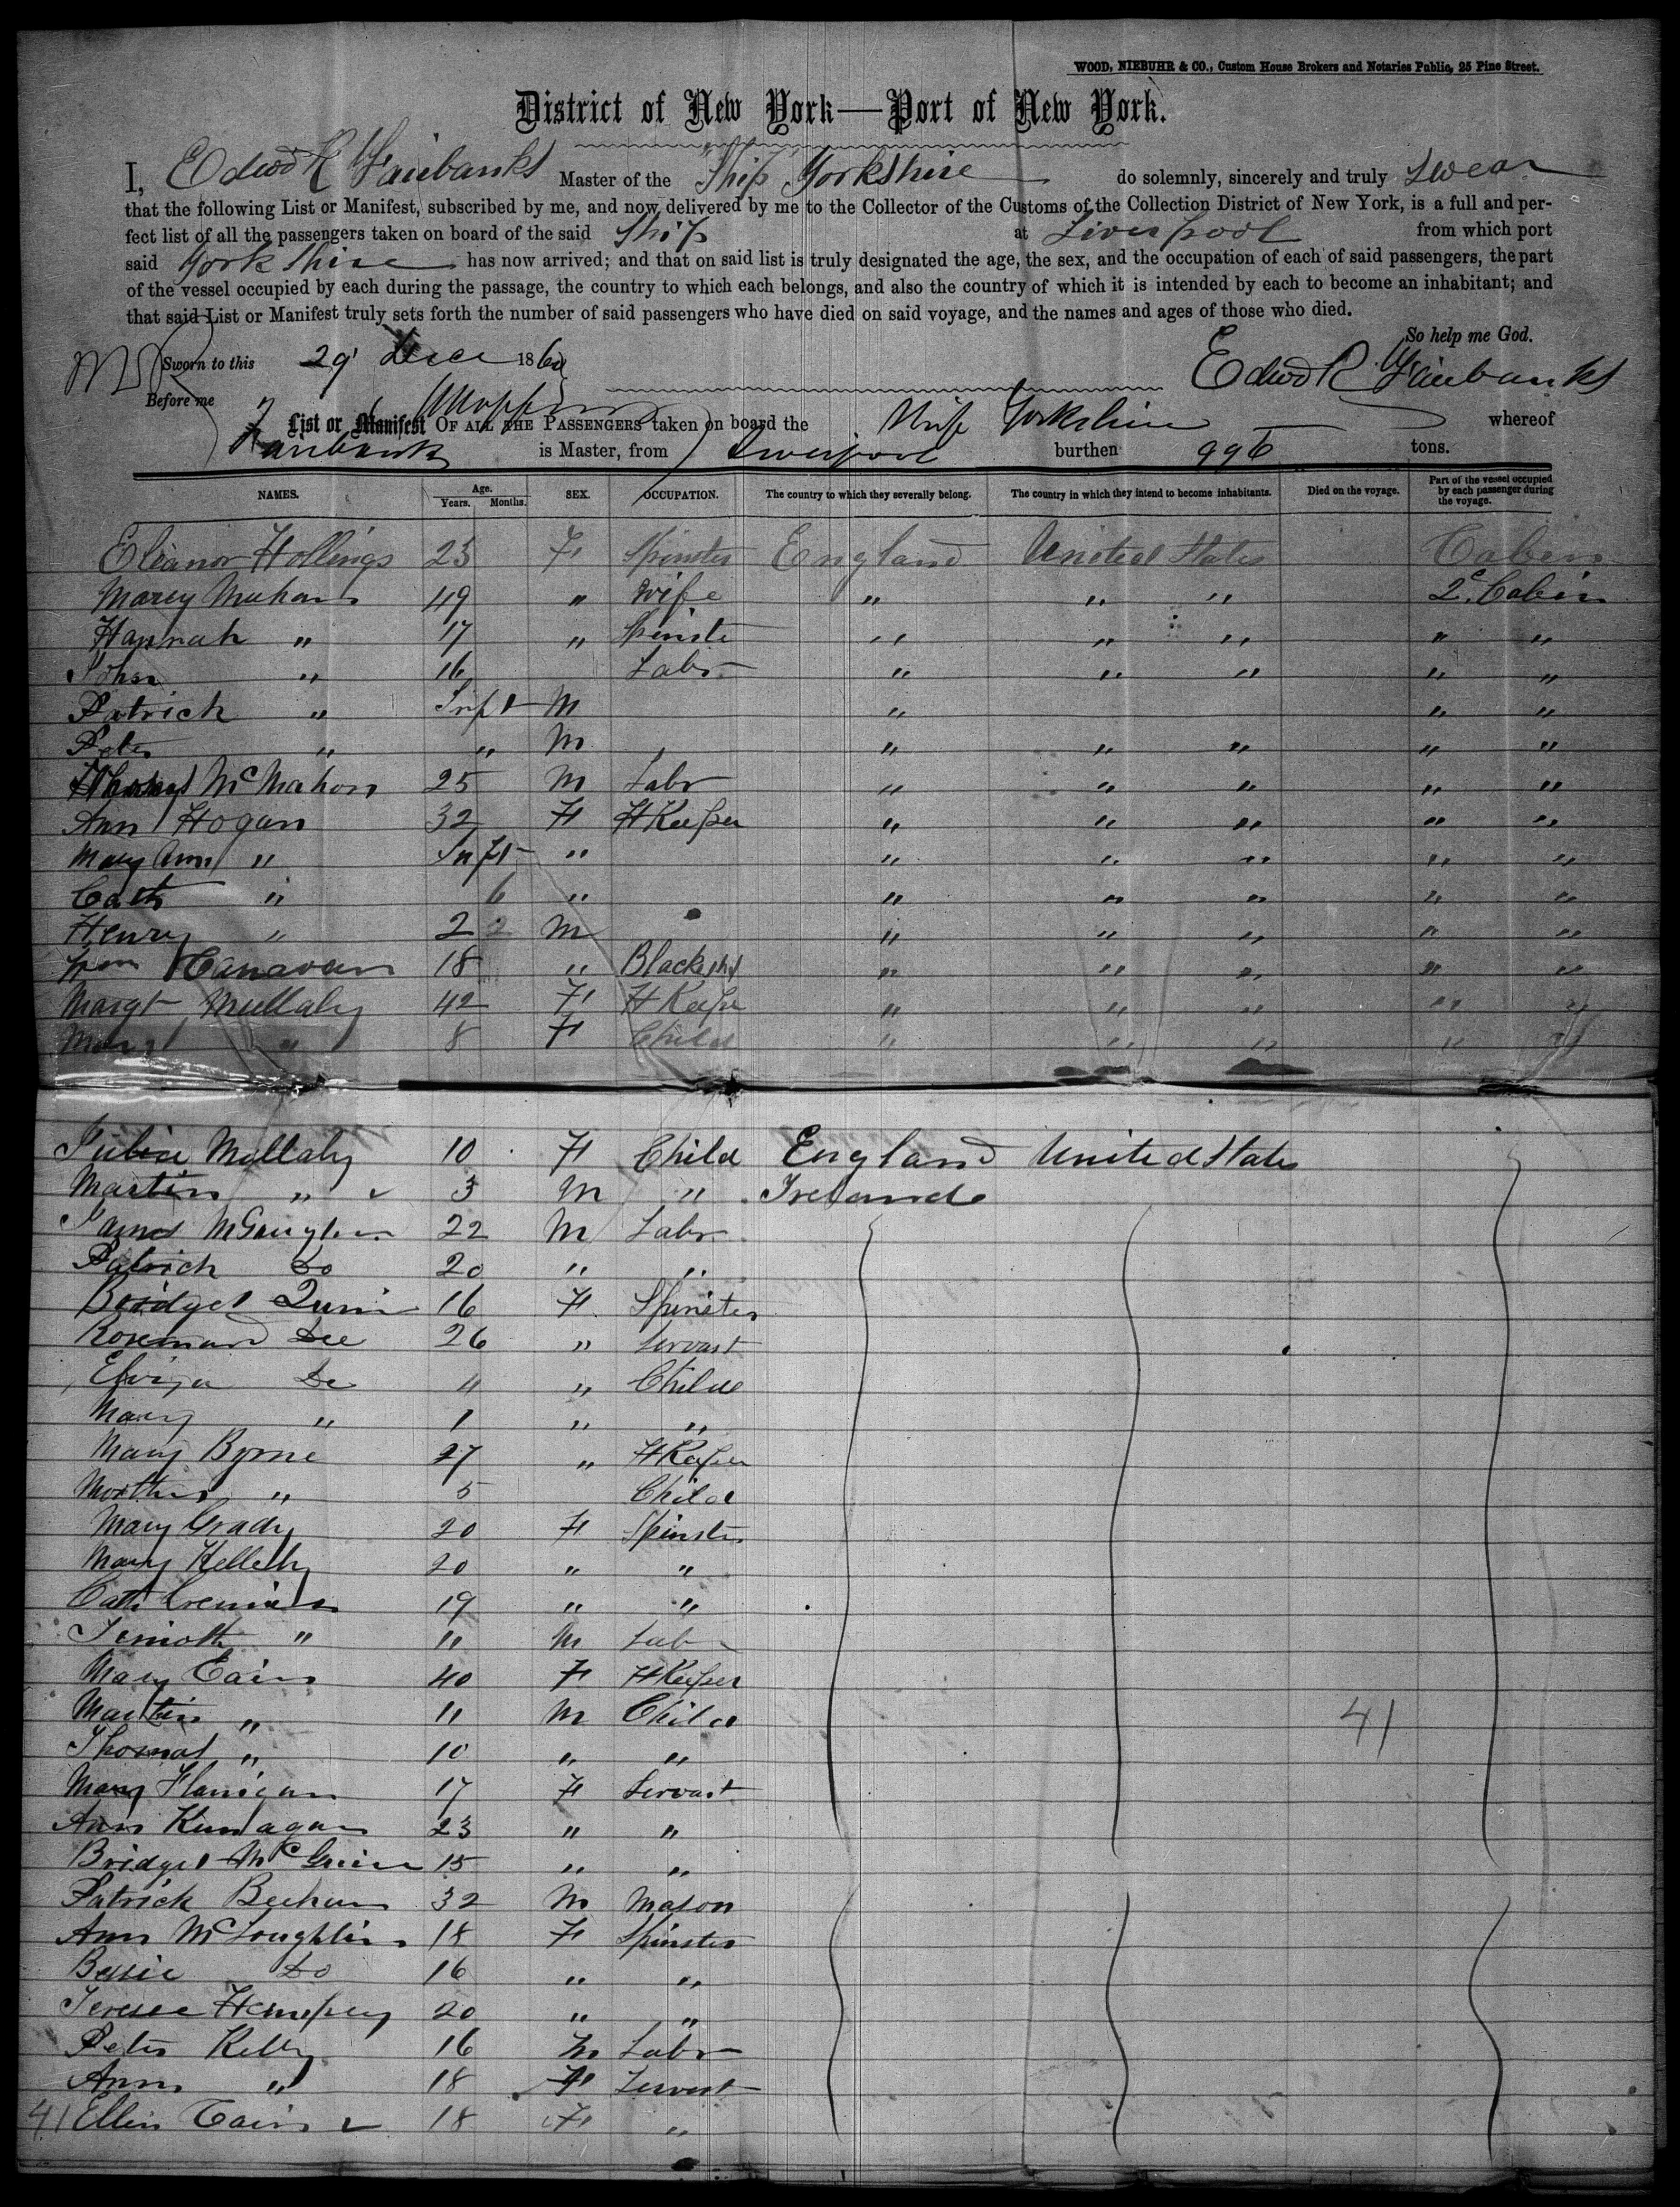 WOOD, NIEBUHR & CO., Custom House Brokers and Notaries Public, 25 Pine Street.
District of New York—Port of New York.
I, Edwd R Fairbanks Master of the Ship Yorkshire do solemnly, sincerely and truly swear
that the following List or Manifest, subscribed by me, and now delivered by me to the Collector of the Customs of the Collection District of New York, is a full and per-
fect list of all the passengers taken on board of the said Ship at Liverpool from which port
said Yorkshire has now arrived; and that on said list is truly designated the age, the sex, and the occupation of each of said passengers, the part
of the vessel occupied by each during the passage, the country to which each belongs, and also the country of which it is intended by each to become an inhabitant; and
that said List or Manifest truly sets forth the number of said passengers who have died on said voyage, and the names and ages of those who died.
So help me God.
Sworn to this 29 Dece 1860
Edwd R Fairbanks
Before me
List or Manifest OF ALL THE PASSENGERS taken on board the Ship Yorkshire whereof
Fairbanks is Master, from Liverpool burthen 996 tons.
NAMES. Age. Years. Months. SEX. OCCUPATION. The country to which they severally belong. The country in which they intend to become inhabitants. Died on the voyage. Part of the vessel occupied by each passenger during the voyage.
Eleanor Hollings 23 F Spinster England United States Cabin
Marey 49 " Wife " " " 2c Cabin
Hannah " 17 " Spinste " " " " "
John " 16 Labr " " " " "
Patrick " Inft M " " "
Peter " " M " " " " "
McMahon 25 M Labr " " " " "
Ann Hogan 32 F HKeeper " " " " "
Mary Ann " Inft " " " " " "
Cath " 6 " " " " " "
Henry " 2 M " " " " "
Wm Canavan 18 " Blacksmt " " " " "
Margt Mullaly 42 F HKeepr " " " " "
" 8 F Child " " " " "
Julia Mullaly 10 F Child England United States
Martin " 3 M " Ireland
James 22 M Labr
Patrick Do 20 " "
Bridget Quin 16 F Spinster
Dee 26 " Servant
4 " Child
Mary " 1 " "
Mary Byrne 27 " HKeeper
" 5 Child
Mary Grady 20 F Spinster
Mary Kelleby 20 " "
Cath 19 " "
" 11 M Labr
Mary Cain 40 F HKeeper
Martin " 11 M Child 41
Thomas " 10 " "
Mary Flanigan 17 F Servant
Ann 23 " "
Bridget 15 " "
Patrick 32 M Mason
Ann McLoughlin 18 F Spinster
Bessie Do 16 " "
20 " "
Peter Kelly 16 M Labr
Ann " 18 F Servant
41 Ellin Cain 18 F "